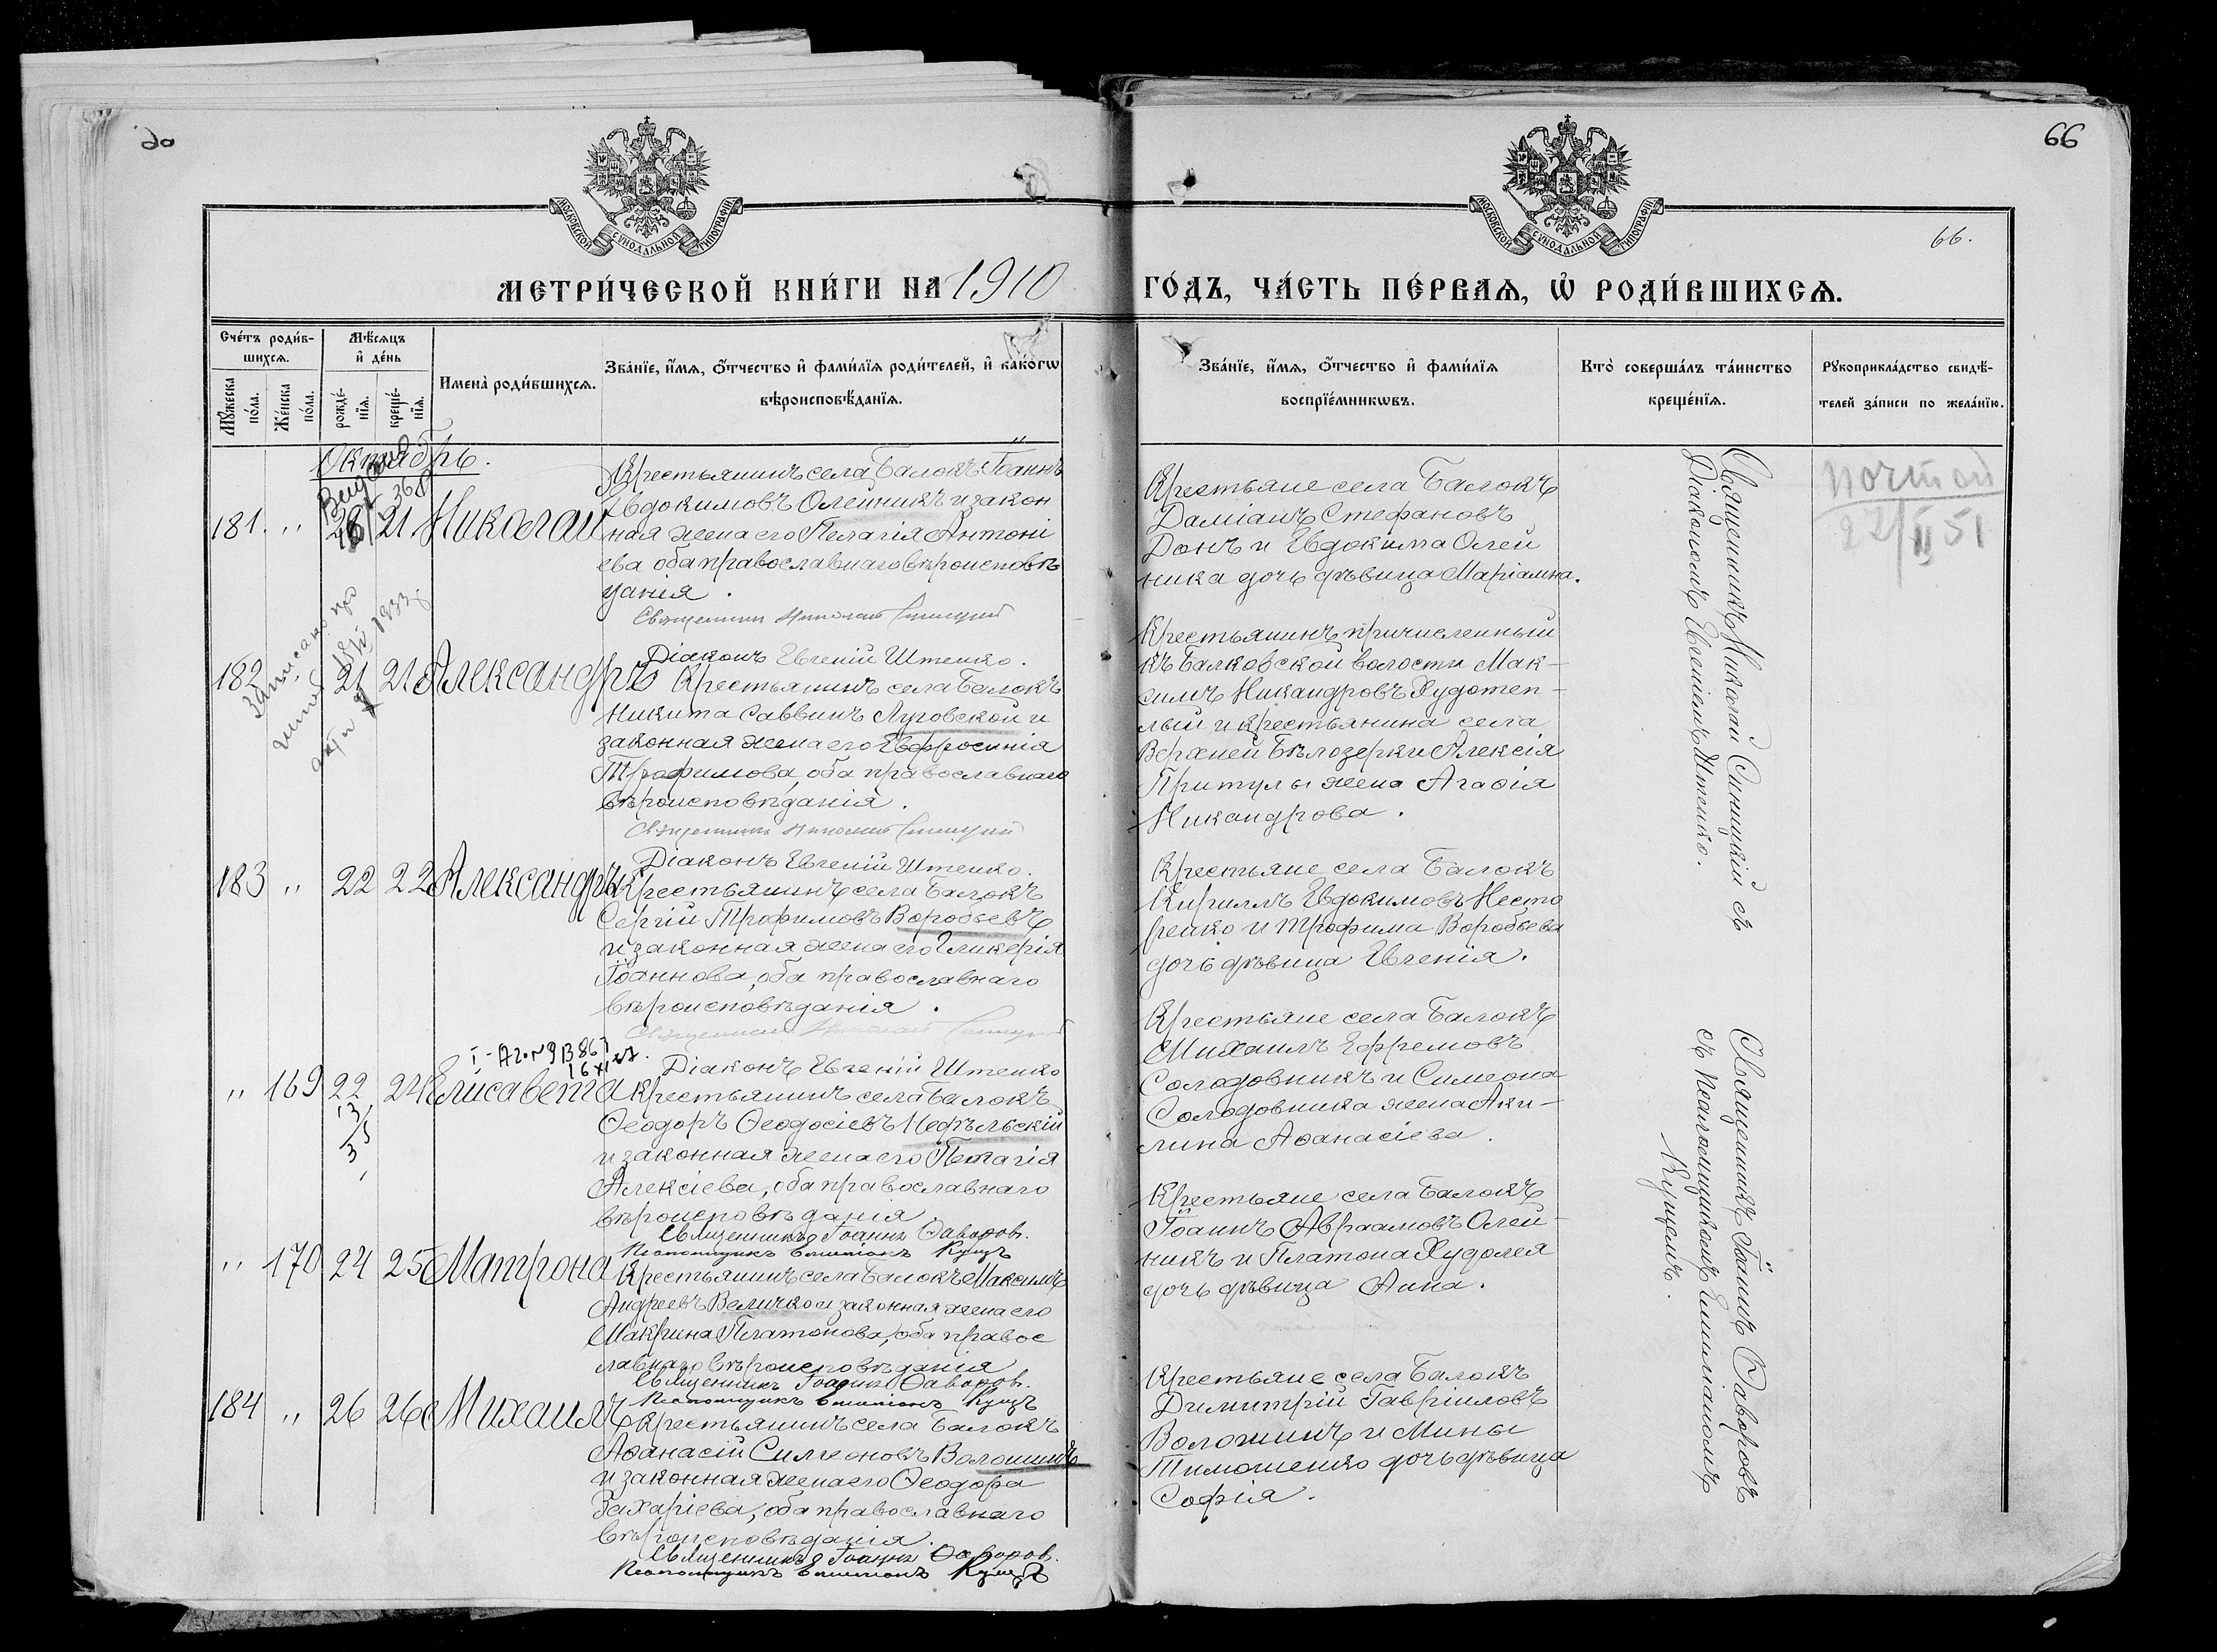 до
66
МОСКОВСКОЙ СѴНОДАЛЬНОЙ ТИПОГРАФІИ
МОСКОВСКОЙ СѴНОДАЛЬНОЙ ТИПОГРАФІИ
66.
МЕТРИ́ЧЕСКОЙ КНИ́ГИ НА 1910 ГО́ДЪ, ЧА́СТЬ ПЕ́РВАѦ, Ѡ҆ РОДИ́ВШИХСѦ.
Сче́тъ роди́в-
шихсѧ.
Мꙋ́жеска
по́ла.
Же́нска
по́ла.
Мѣ́сѧцъ
и҆ де́нь
рожде́-
нїѧ.
креще́-
нїѧ.
Имена̀ роди́вшихсѧ.
Зва́нїе, и҆́мѧ, ѻ҆́тчество и҆ фами́лїѧ роди́телей, и҆ како́гѡ
вѣроисповѣ́данїѧ.
Зва́нїе, и҆́мѧ, ѻ҆́тчество и҆ фами́лїѧ
воспрїе́мникѡвъ.
Кто̀ соверша́лъ та́инство
креще́нїѧ.
Рꙋкоприкла́дство свидѣ́-
телей за́писи по жела́нїю.
Октябрь.
181. " 21 Николай
Крестьянинъ села Балокъ Іоаннъ
Евдокимовъ Олейникъ и закон
ная жена его Пелагія Антоні
ева оба православнаго вѣроисповѣ
данія.
Священникъ Николай Синицкій
Діаконъ Евгеній Штенко.
Крестьяне села Балокъ
Даміанъ Стефановъ
Донъ и Евдокима Олей
ника дочь дѣвица Маріамна.
Священникъ Николай Синицкій съ
Діакономъ Евгеніемъ Штенко.
почтой
22/II 51
Записано
1933
182 " 21 21 Александръ
Крестьянинъ села Балокъ
Никита Саввинъ Луговской и
законная жена его Евфросинія
Трофимова, оба православнаго
вѣроисповѣданія.
Священникъ Николай Синицкій
Діаконъ Евгеній Штенко.
Крестьянинъ причисленный
къ Балковской волости Мак-
симъ Никандровъ Худотеп-
лый и крестьянина села
Верхней Бѣлозерки Алексія
Притулы жена Агафія
Никандрова.
183 " 22 22 Александръ
Крестьянинъ села Балокъ
Сергій Трофимовъ Воробьевъ
и законная жена его Гликерія
Іоаннова, оба православнаго
вѣроисповѣданія.
Священникъ Николай Синицкій
Діаконъ Евгеній Штенко
Крестьяне села Балокъ
Кириллъ Евдокимовъ Несто
ренко и Трофима Воробьева
дочь дѣвица Евгенія.
" 169 22 24 Елисавета
Крестьянинъ села Балокъ
Ѳеодоръ Ѳеодосіевъ Недѣльскій
и законная жена его Пелагія
Алексіева, оба православнаго
вѣроисповѣданія.
Священникъ Іоаннъ Ѳаворовъ.
Псаломщикъ Емиліанъ Кущъ
Крестьяне села Балокъ
Михаилъ Ефремовъ
Солодовникъ и Симеона
Солодовника жена Аки-
лина Аѳанасіева.
Священникъ Іоаннъ Ѳаворовъ
съ псаломщикомъ Емиліаномъ
Кущемъ.
" 170 24 25 Матрона
Крестьянинъ села Балокъ Максимъ
Андреевъ Величко и законная жена его
Макрина Платонова, оба правос
лавнаго вѣроисповѣданія
Священникъ Іоаннъ Ѳаворовъ.
Псаломщикъ Емиліанъ Кущъ
Крестьяне села Балокъ
Іоаннъ Авраамовъ Олей-
никъ и Платона Худолея
дочь дѣвица Анна.
184 " 26 26 Михаилъ
Крестьянинъ села Балокъ
Аѳанасій Симеоновъ Волошинъ
и законная жена его Ѳеодора
Захаріева, оба православнаго
вѣроисповѣданія.
Священникъ Іоаннъ Ѳаворовъ.
Псаломщикъ Емиліанъ Кущъ
Крестьяне села Балокъ
Димитрій Гавріиловъ
Волошинъ и Мины
Тимошенко дочь дѣвица
Софія.